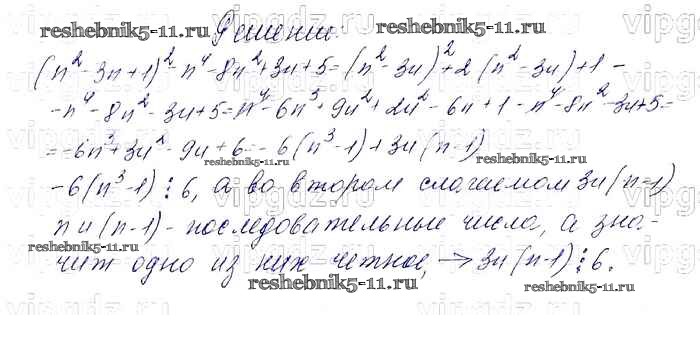 reshebnik5-11.ru Решение. reshebnik5-11.ru
(n² - 3n + 1)² - n⁴ - 8n² + 3n + 5 = (n² - 3n)² + 2(n² - 3n) + 1 -
- n⁴ - 8n² - 3n + 5 = n⁴ - 6n³ + 9n² + 2n² - 6n + 1 - n⁴ - 8n² - 3n + 5 =
= -6n³ + 3n² - 9n + 6 = -6(n³ - 1) + 3n(n - 1)
reshebnik5-11.ru reshebnik5-11.ru
-6(n³ - 1) ⋮ 6, а во втором слагаемом 3n(n - 1)
n и (n - 1) - последовательные числа, а зна-
reshebnik5-11.ru
чит одно из них четное, → 3n(n - 1) ⋮ 6.
reshebnik5-11.ru reshebnik5-11.ru
vipgdz.ru